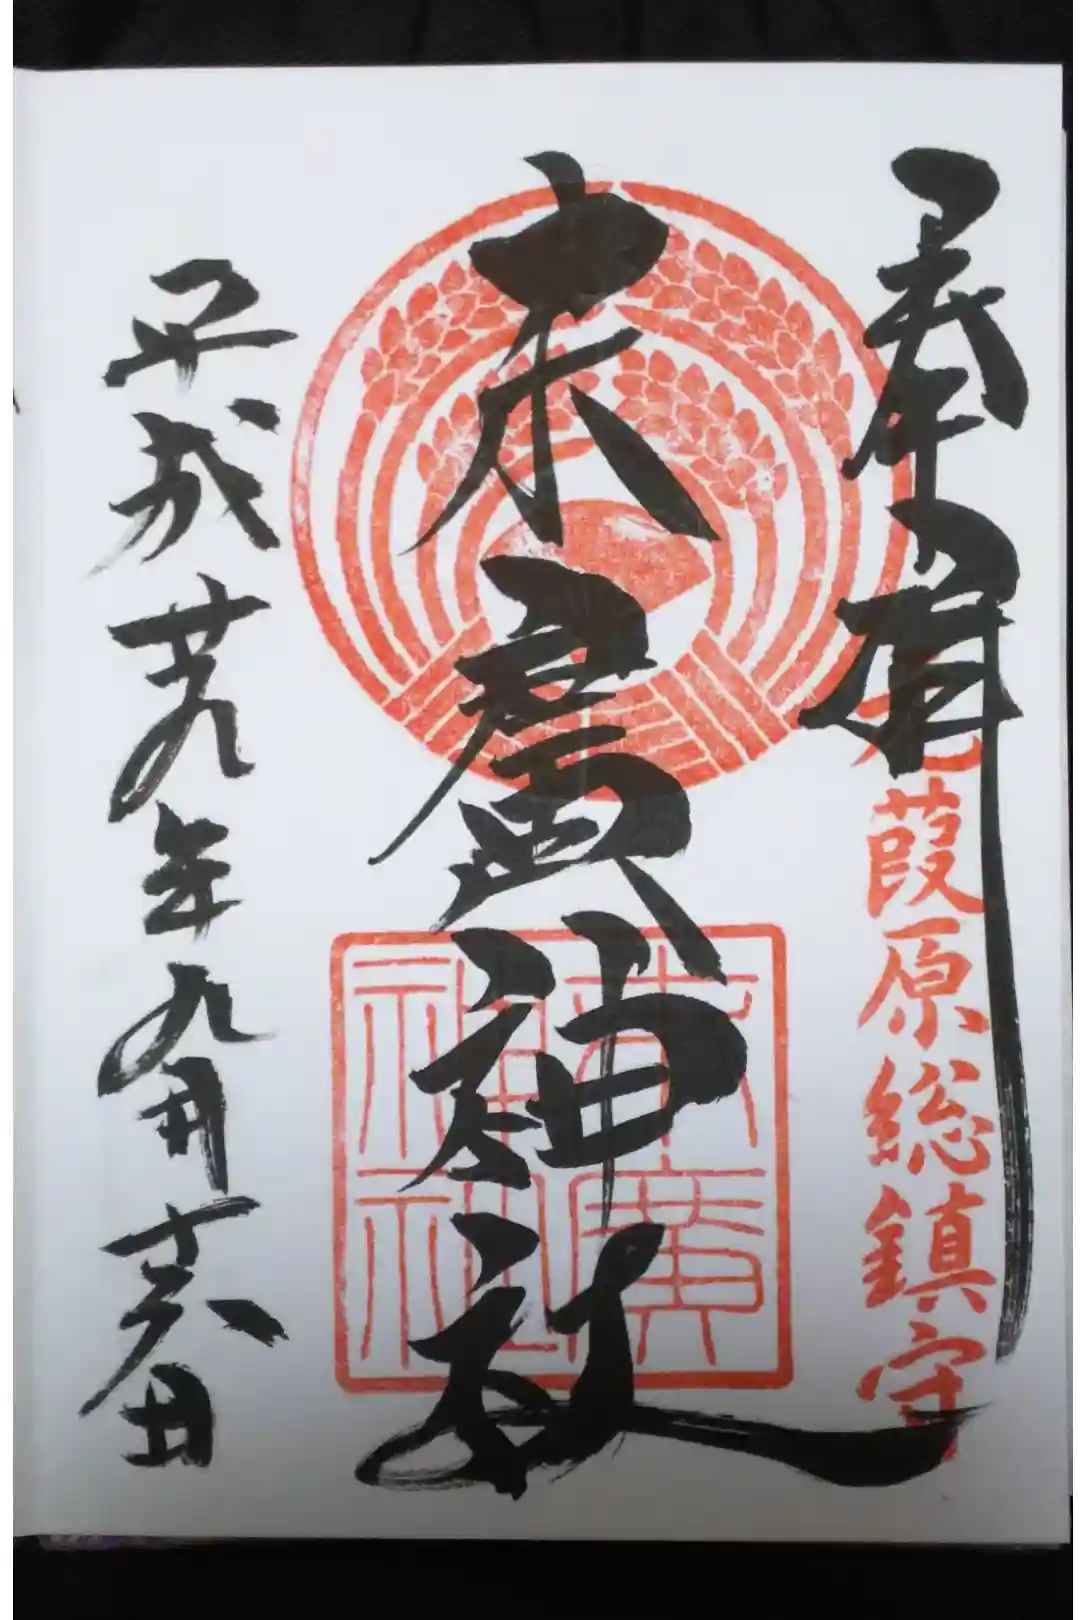 奉拝
元葭原総鎮守
末廣神社
末廣神社
平成廿九年九月十六日